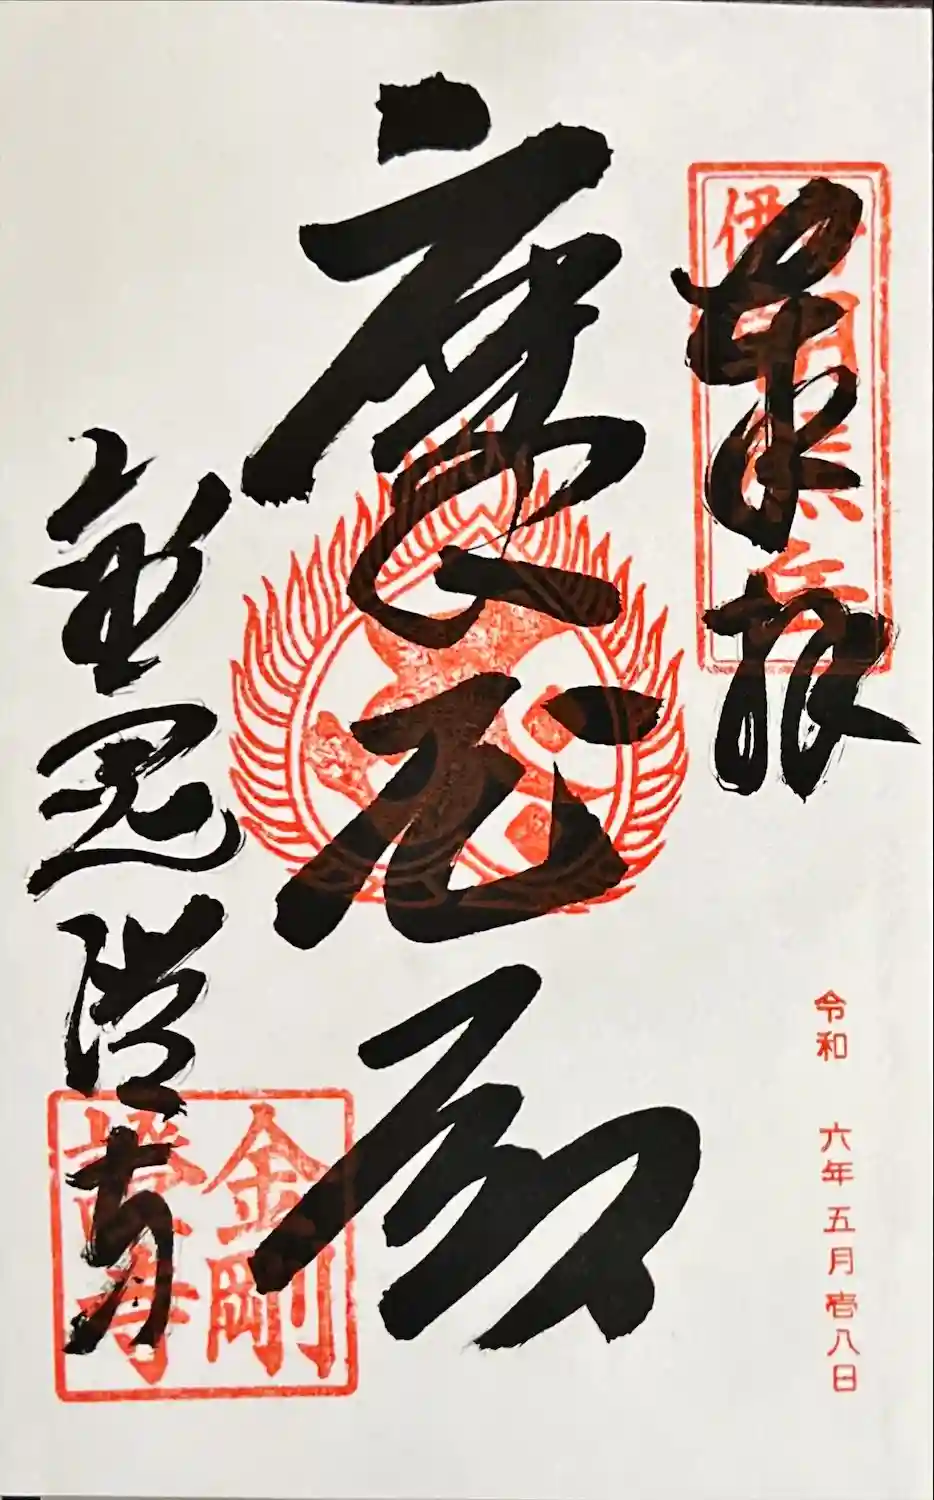 奉拝
伊勢朝熊岳
令和 六年五月壱八日
金剛證寺
金剛
證寺